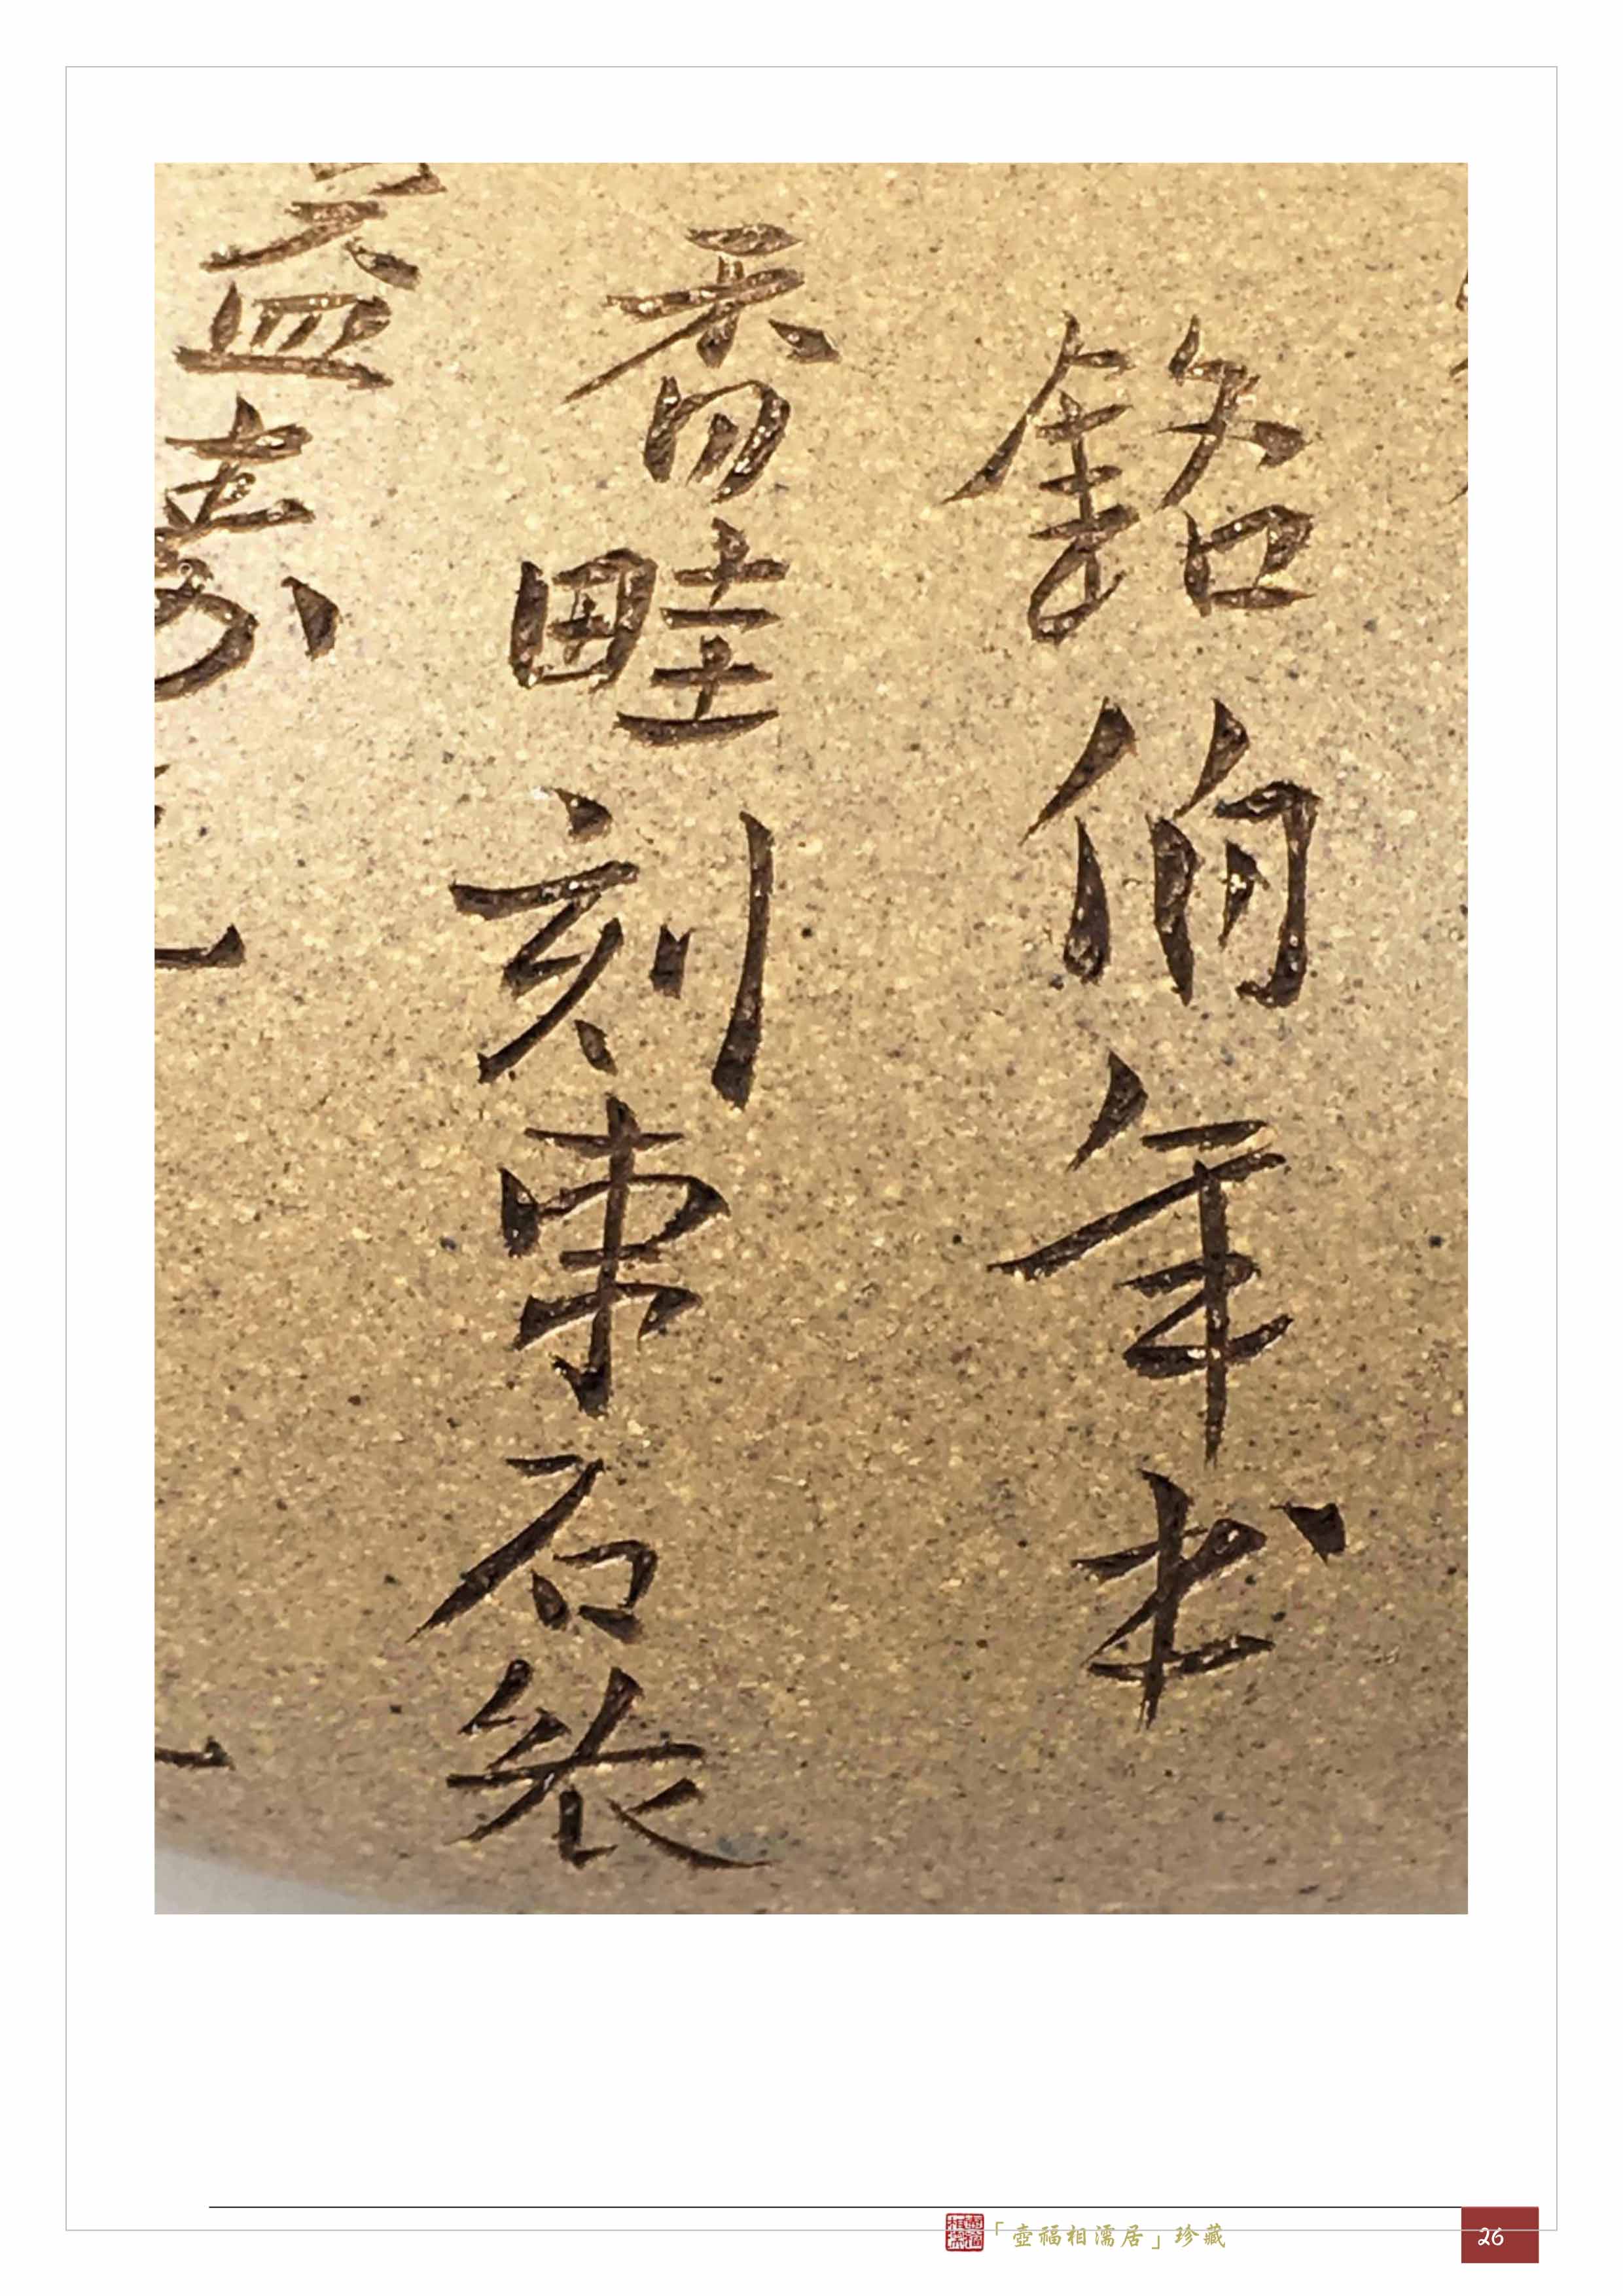 銘伯年书
香畦刻東石製
益壽
「壺福相濡居」珍藏
26